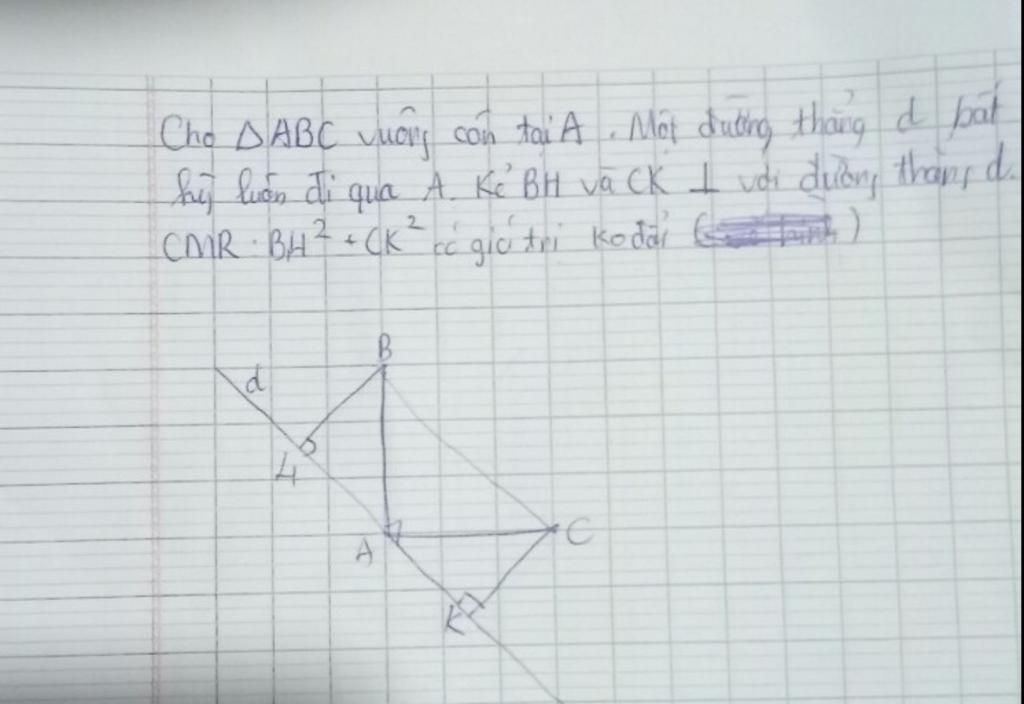 Cho ΔABC vuông cân tại A. Một đường thẳng d bất
kỳ luôn đi qua A. Kẻ BH và CK ⊥ với đường thẳng d.
CMR: BH² + CK² có giá trị ko đổi ( )
B
d
H
A
C
K